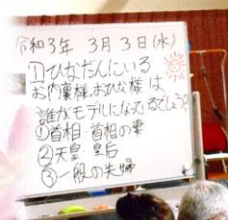 令和3年 3月3日(水)
①ひなだんにいる
お内裏様、おひな様は
誰がモデルになっているでしょう?
①首相・首相の妻
②天皇・皇后
③一般の夫婦